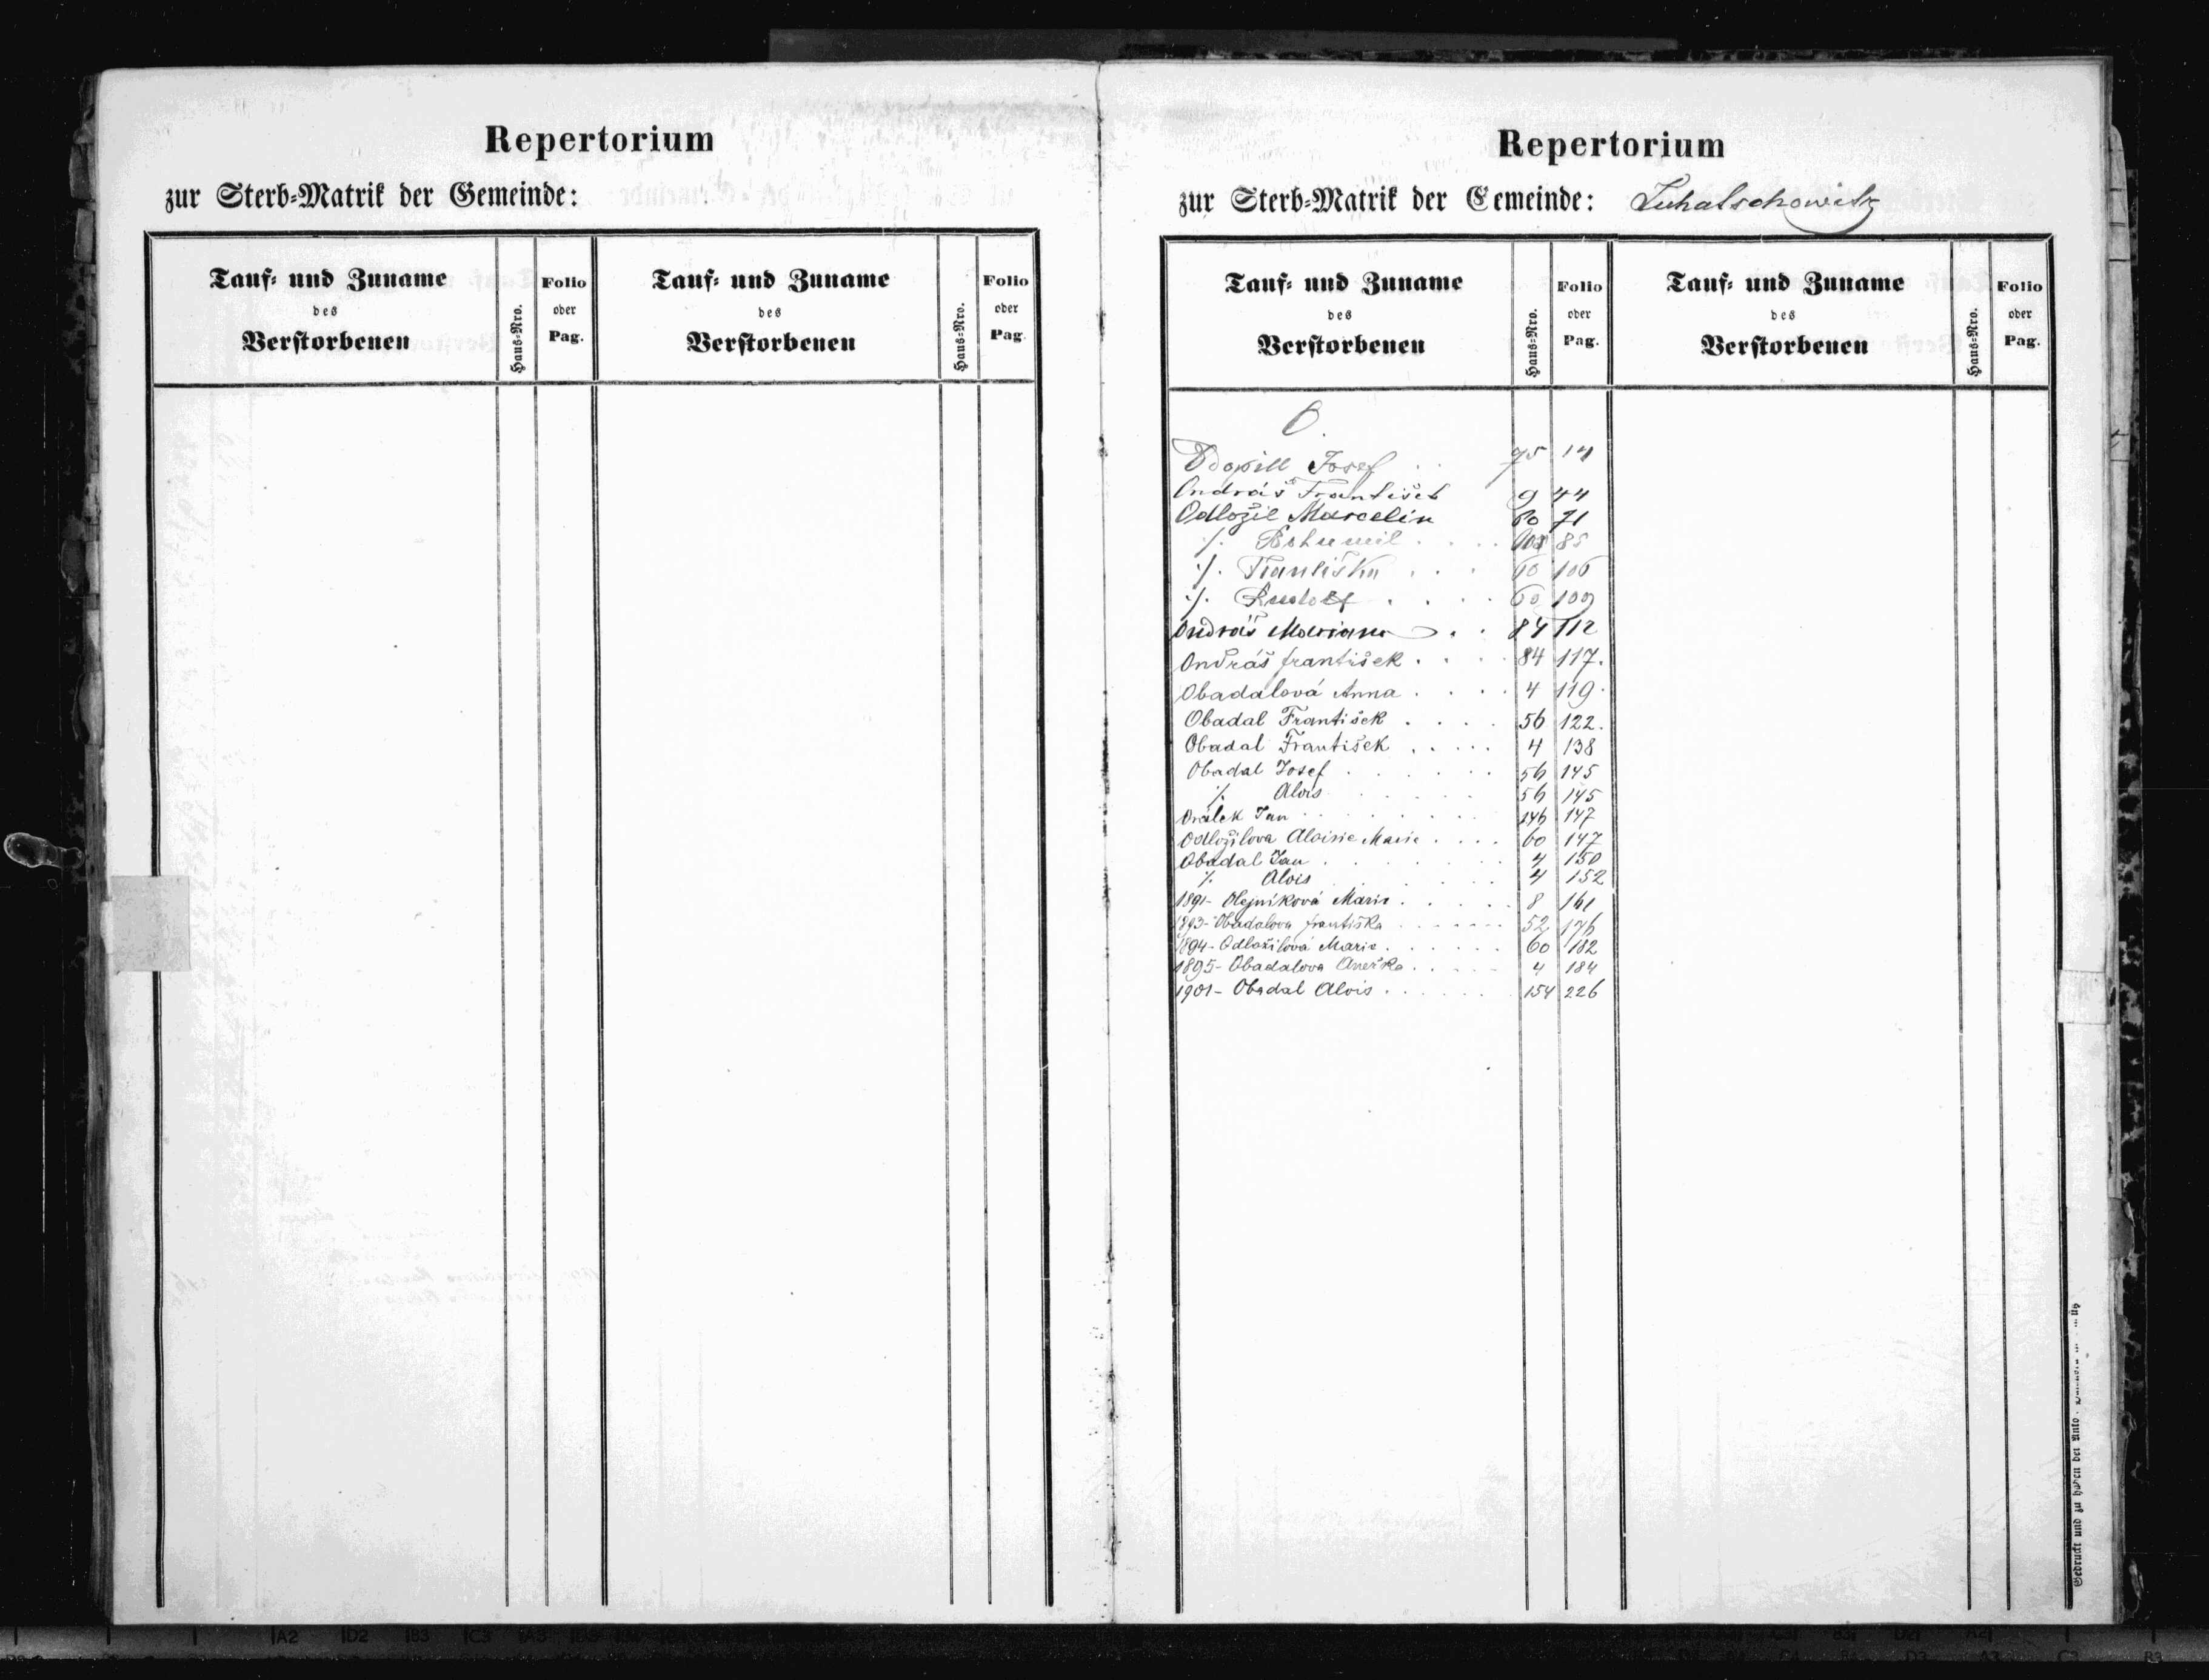 Repertorium
zur Sterb-Matrik der Gemeinde:
Tauf- und Zuname
des
Verstorbenen
Haus-Nro.
Folio
oder
Pag.
Tauf- und Zuname
des
Verstorbenen
Haus-Nro.
Folio
oder
Pag.
Repertorium
zur Sterb-Matrik der Gemeinde: Luhatschowitz
Tauf- und Zuname
des
Verstorbenen
Haus-Nro.
Folio
oder
Pag.
Tauf- und Zuname
des
Verstorbenen
Haus-Nro.
Folio
oder
Pag.
O.
Josef . . 75
Ondráš František 9 44
Odložil Marcelin 60 71
·/. Bohumil . . . . 85
·/. Františka . . . 60 106
·/. Rudolf . . . . 60 109
Ondráš Mariana . . 84 112
Ondráš František . . . . 84 117.
Obadalová Anna . . . . 4 119.
Obadal František . . . . 56 122.
Obadal František . . . . . 4 138
Obadal Josef . . . . . . 56 145
·/. Alois . . . . . 56 145
Orálek Jan . . . . . . . 146 147
Odložilova Aloisie Marie . . . . 60 147
Obadal Jan . . . . . . . 4 150
·/. Alois . . . . 4 152
1891- Olejníková Marie . . . . . 8 161
1893- Obadalova Františka . . . . . . . 52 176
1894- Odložilová Marie . . . . . . 60 182
1895- Obadalova Anežka . . . . . 4 184
1901- Obadal Alois . . . . . . 154 226
Gedruckt und zu haben bei